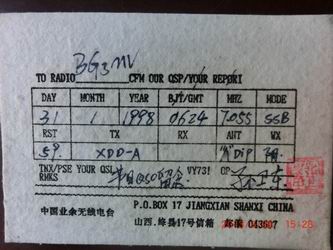 BG3MV
TO RADIO CFM OUR QSP/YOUR REPORI
DAY MONTH YEAR BJT/GMT MHZ MODE
31 1 1998 0624 7.055 SSB
RST TX RX ANT WX
59 XDD-A DiP 阴
TNX/PSE YOUR QSL VY73! OP
RMKS
P.O.BOX 17 JIANGXIAN SHANXI CHINA
中国业余无线电台 山西.绛县17号信箱 邮编 043607
15:28